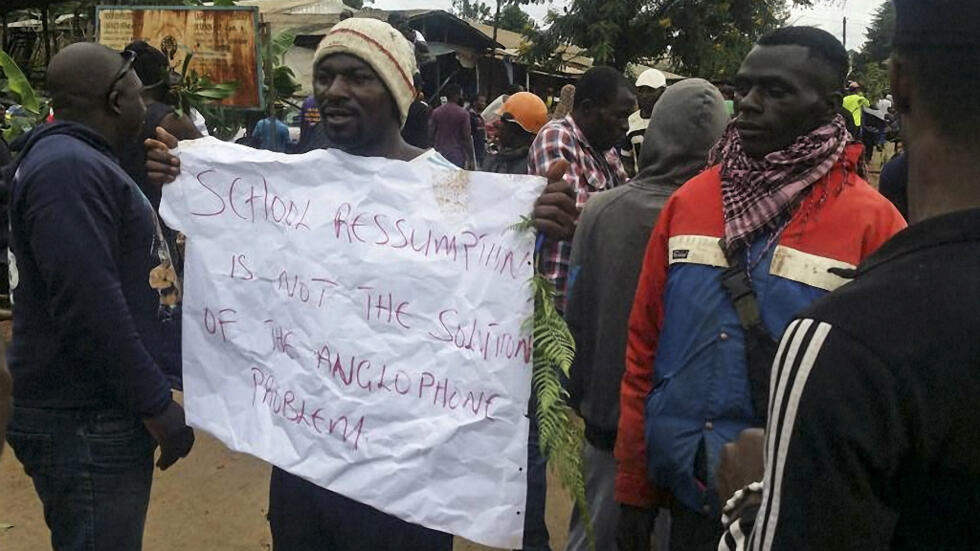 SCHOOL RESSUMPTION
IS NOT THE SOLUTION
OF THE ANGLOPHONE
PROBLEM